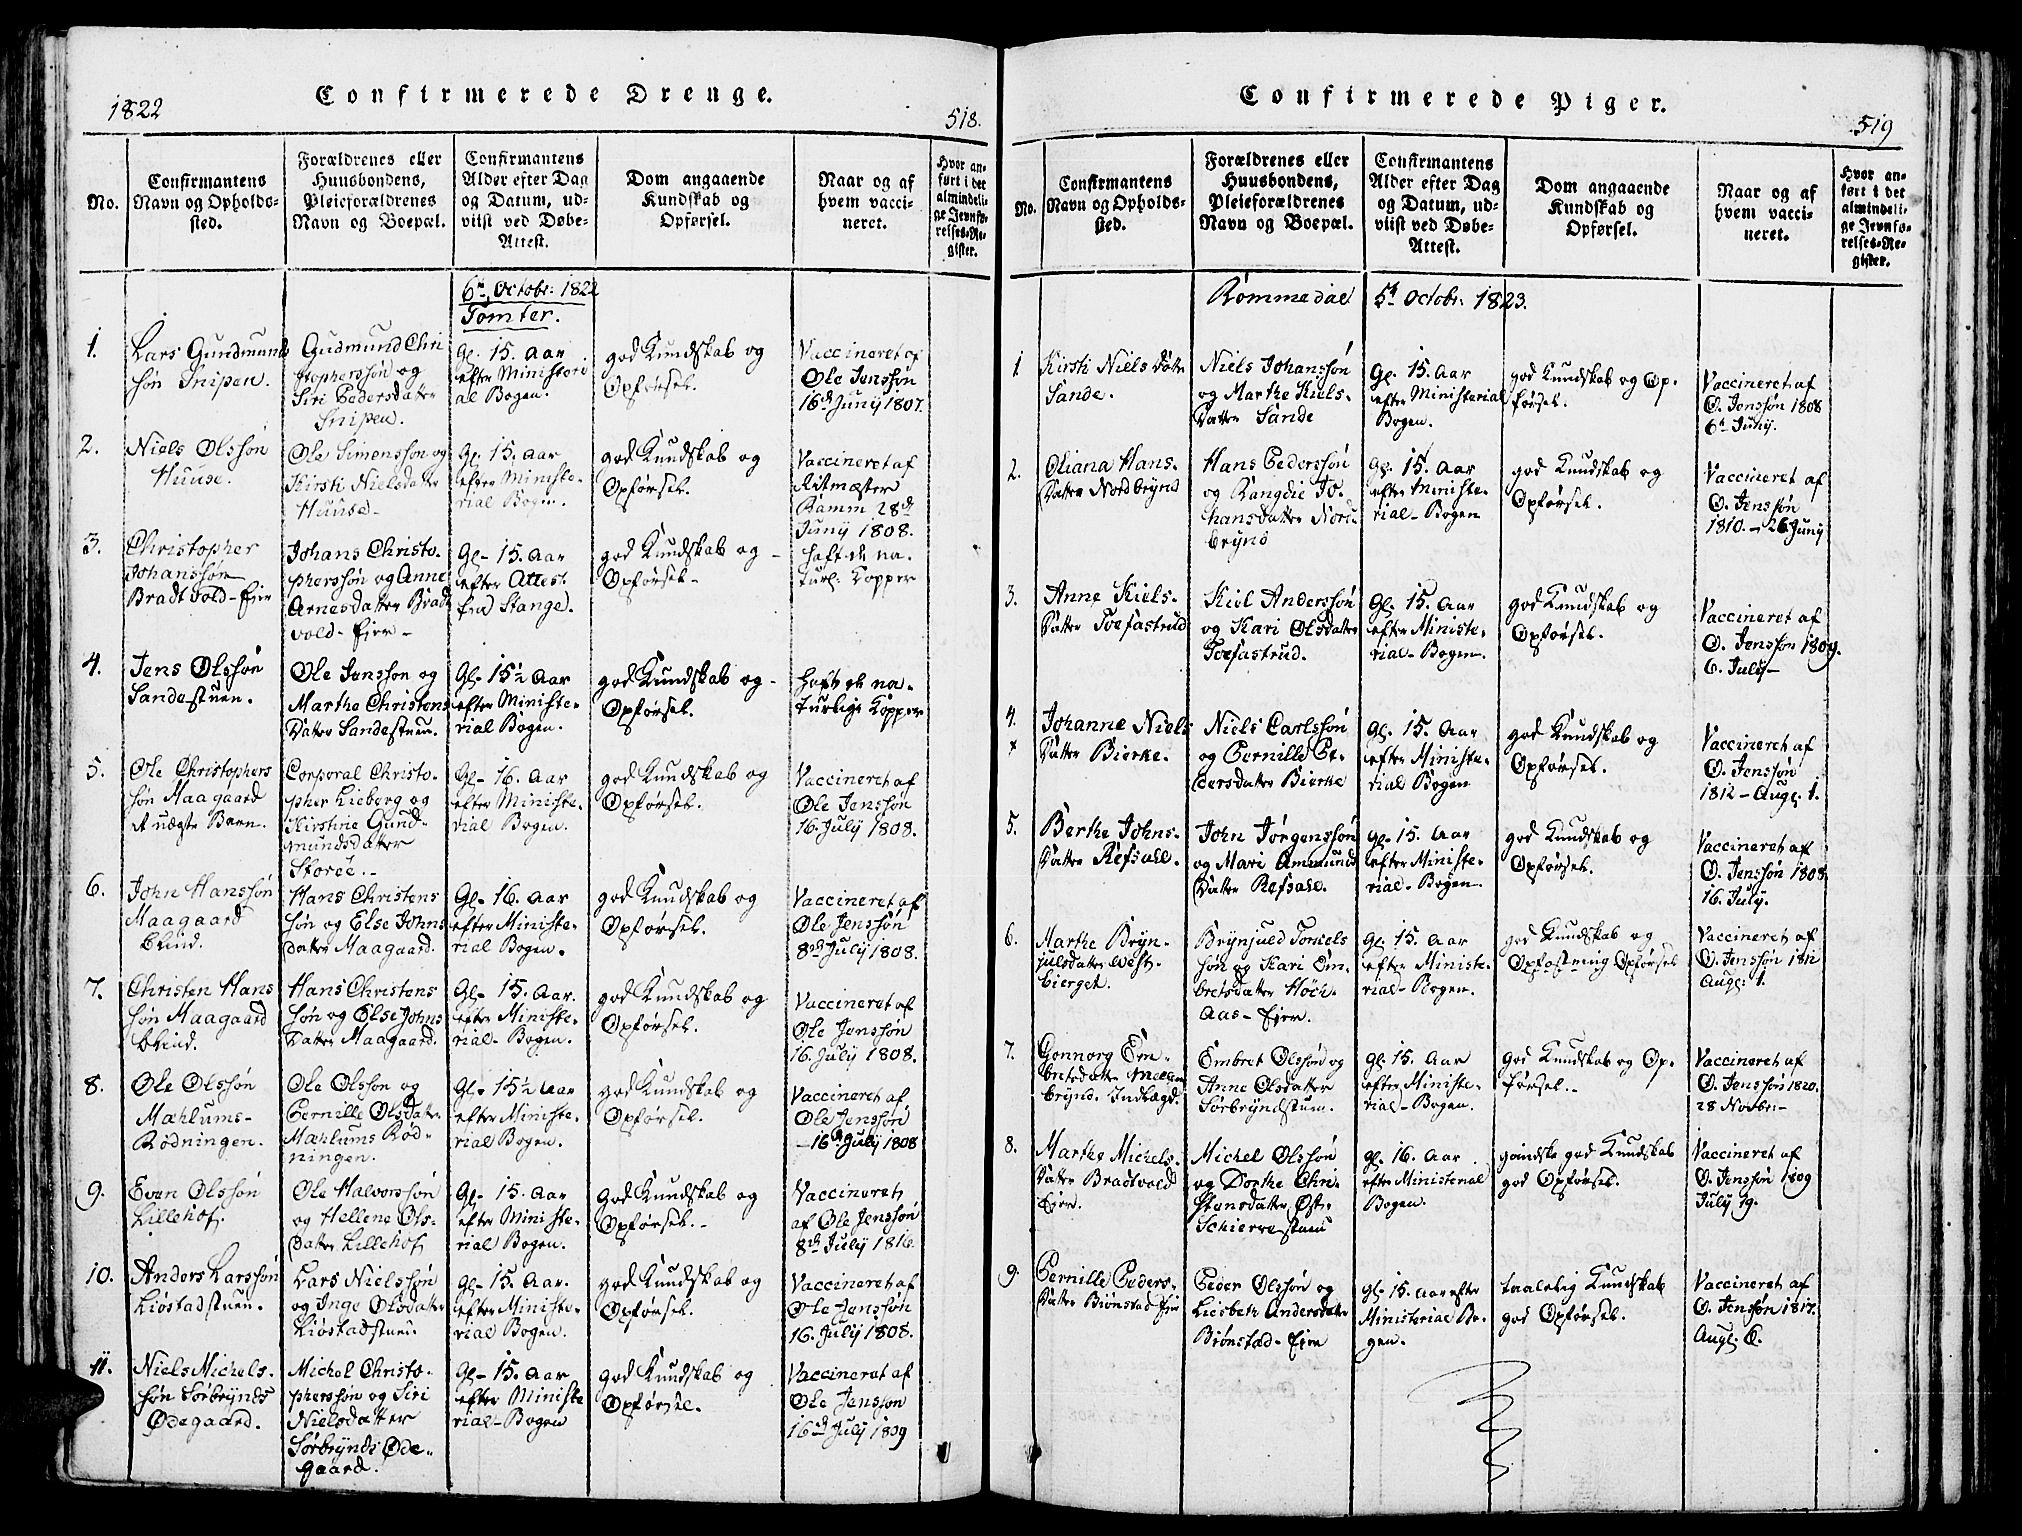 1822
Confirmerede Drenge.
518.
No.
Confirmantens
Navn og Opholds-
sted.
Forældrenes eller
Huusbondens,
Pleieforældrenes
Navn og Boepæl.
Confirmantens
Alder efter Dag
og Datum, ud-
viist ved Døbe-
Attest.
Dom angaaende
Kundskab og
Opførsel.
Naar og af
hvem vacci-
neret.
Hvor an-
ført i det
almindeli-
ge Jevnfø-
relses-Re-
gister.
6te October 1822
Tomter.
1.
Lars Gundmunds
søn Snipen.
Gudmund Chri
stopherssøn og
Siri Pedersdatter
Snipen.
Gl. 15. Aar
efter Ministeri
al Bogen.
god Kundskab og
Opførsel.
Vaccineret af
Ole Jenssøn
16de Juny 1807.
2.
Niels Olssøn
Huuse.
Ole Simenssøn og
Kirsti Nielsdatter
Huuse-
Gl. 15. Aar
efter Ministe-
rial Bogen.
god Kundskab og
Opførsel.
Vaccineret af
Ritmæster
Ramm 28de
Juny 1808.
3.
Christopher
Johanssøn
Bradtvold-Eier
Johans Christo-
pherssøn og Anne
Arnesdatter Bradt
vold-Eier-
Gl- 15. Aar
efter Attest
fra Stange.
god Kundskab og -
Opførsel-
haft de na-
turl: Kopper
4.
Jens Olssøn
Sandestuen.
Ole Jenssøn og
Marthe Christens
Datter Sandestuen.
Gl- 15½ Aar
efter Ministe-
rial Bogen.
god Kundskab og -
Opførsel.
haft de na-
turlige Kopper
5.
Ole Christophers
søn Maagaard
et uægte Barn.
Corporal Christo-
pher Lieberg og
Kirstine Gund-
mundsdatter
Storøe.-
Gl- 16. Aar
efter Ministe-
rial Bogen.
god Kundskab og
Opførsel.
Vaccineret af
Ole Jenssøn
16. July 1808.
6.
John Hanssøn
Maagaard
blind.
Hans Christens
søn og Else Johns
datter Maagaard.
Gl- 16. Aar
efter Ministe-
rial Bogen.
god Kundskab og
Opførsel.
Vaccineret af
Ole Jenssøn
8de July 1808.
7.
Christen Hans
søn Maagaard
blind.
Hans Christens
søn og Else Johns
Datter Maagaard.
Gl- 15. Aar.
efter Ministe-
rial-Bogen.
god Kundskab og
Opførsel.
Vaccineret af
Ole Jenssøn
16. July 1808.
8.
Ole Olssøn
Mæhlums-
Rødningen.
Ole Olssøn og
Pernille Olsdatter
Mæhlums Rød-
ningen.
Gl- 15½ Aar
efter Ministe-
rial Bogen.
god Kundskab og
Opførsel.
Vaccineret af
Ole Jenssøn
-16de July 1808
9.
Even Olssøn
Lillehof.
Ole Halvorssøn
og Hellene Ols-
datter Lillehof
Gl- 15. Aar
efter Ministe-
rial Bogen.
God Kundskab og
Opførsel.-
Vaccineret
af Ole Jenssøn
8de July 1816.
10.
Anders Larssøn
Liøstadstuen.
Lars Nielssøn
og Inge Olsdatter
Liøstadstuen.
gl- 15. Aar.
efter Ministe-
rial Bogen.
god Kundskab og
Opførsel.
Vaccineret af
Ole Jenssøn
16. July 1808.
11.
Niels Michels-
søn Sørbrynds
Ødegaard.
Michel Christo-
pherssøn og Siri
Nielsdatter
Sørbrynds Øde-
gaard.
Gl- 15. Aar
efter Ministe
rial-Bogen
god Kundskab og
Opførsel.
Vaccineret af
Ole Jenssøn
16de July 1809
Confirmerede Piger.
519
No.
Confirmantens
Navn og Opholds-
sted.
Forældrenes eller
Huusbondens,
Pleieforældrenes
Navn og Boepæl.
Confirmantens
Alder efter Dag
og Datum, ud-
viist ved Døbe-
Attest.
Dom angaaende
Kundskab og
Opførsel.
Naar og af
hvem vacci-
neret.
Hvor an-
ført i det
almindeli-
ge Jevnfø-
relses-Re-
gister.
Rommedal 5te Octobr: 1823.
1
Kirsti Niels Datter
Sande.
Niels Johanssøn
og Marthe Kiels-
Datter Sande
Gl. 15. Aar
efter Ministerial
Bogen.
god Kundskab og Op-
førsel.
Vaccineret af
O. Jenssøn 1808
6te Juny.
2.
Oliana Hans-
Datter Nordbrynd
Hans Pederssøn
og Rangdie Jo-
hansdatter Nord-
brynd
Gl. 15. Aar
efter Ministe-
rial-Bogen
god Kundskab og
Opførsel.
Vaccineret af
O. Jenssøn
1810.-26 Juny
3.
Anne Kiels-
Datter Toefastrud
Kiel Anderssøn
og Kari Olsdatter
Toefastrud.
Gl. 15. Aar
efter Ministe-
rial-Bogen.
god Kundskab og
Opførsel.
Vaccineret af
O. Jenssøn 1809.
6. July-
4.
x
Johanne Niels
Datter Bierke.
Niels Carlssøn
og Pernille Pe-
dersdatter Bierke
Gl. 15. Aar
efter Ministe-
rial Bogen
god Kundskab og
Opførsel.
Vaccineret af
O. Jenssøn
1812-Aug: 1.
5.
Berthe Johns-
Datter Refsale.
John Jørgenssøn
og Mari Ammund
Datter Refsale.
Gl. 15. Aar
efter Ministe-
rial-Bogen.
god Kundskab og
Opførsel.
Vaccineret af
O. Jenssøn 1808
16. July.
6.
Marthe Bryn-
julsdatter West-
bierget.
Brynjuld Toniels
søn og Kari Em-
bretsdatter Höch-
Aas-Eier.
Gl. 15. Aar
efter Ministe-
rial-Bogen.
god Kundskab og
Opførsel
Vaccineret af
O. Jenssøn
Aug: 1.
7.
Gonnorg Em-
bretsdatter
brynd. Indlægd.
Embret Olssøn og
Anne Olsdatter
Sørbryndstuen.
gl. 15. Aar
efter Ministe-
rial-Bogen.
god Kundskab og Op-
førsel.-
Vaccineret af
O. Jenssøn 1820.
28 Novbr.-
8.
Marthe Michels-
Datter Bradtvold
Eier.
Michel Olssøn
og Dorthe Chri-
stensdatter Øst-
Schierrestuen
gl. 16. Aar
efter Ministerial
Bogen.
gandske god Kundskab
god Opførsel.
Vaccineret af
O. Jenssøn 1809
July 19.
9.
Pernille Peders-
Datter Biønstad Eier
Peder Olssøn og
Liesbeth Andersdatter
Biønstad-Eier
gl. 15. Aar efter
Ministerial Bo-
gen.
taalelig Kundskab
god Opførsel.
Vaccineret af
O. Jenssøn 1817.
Aug: 6.